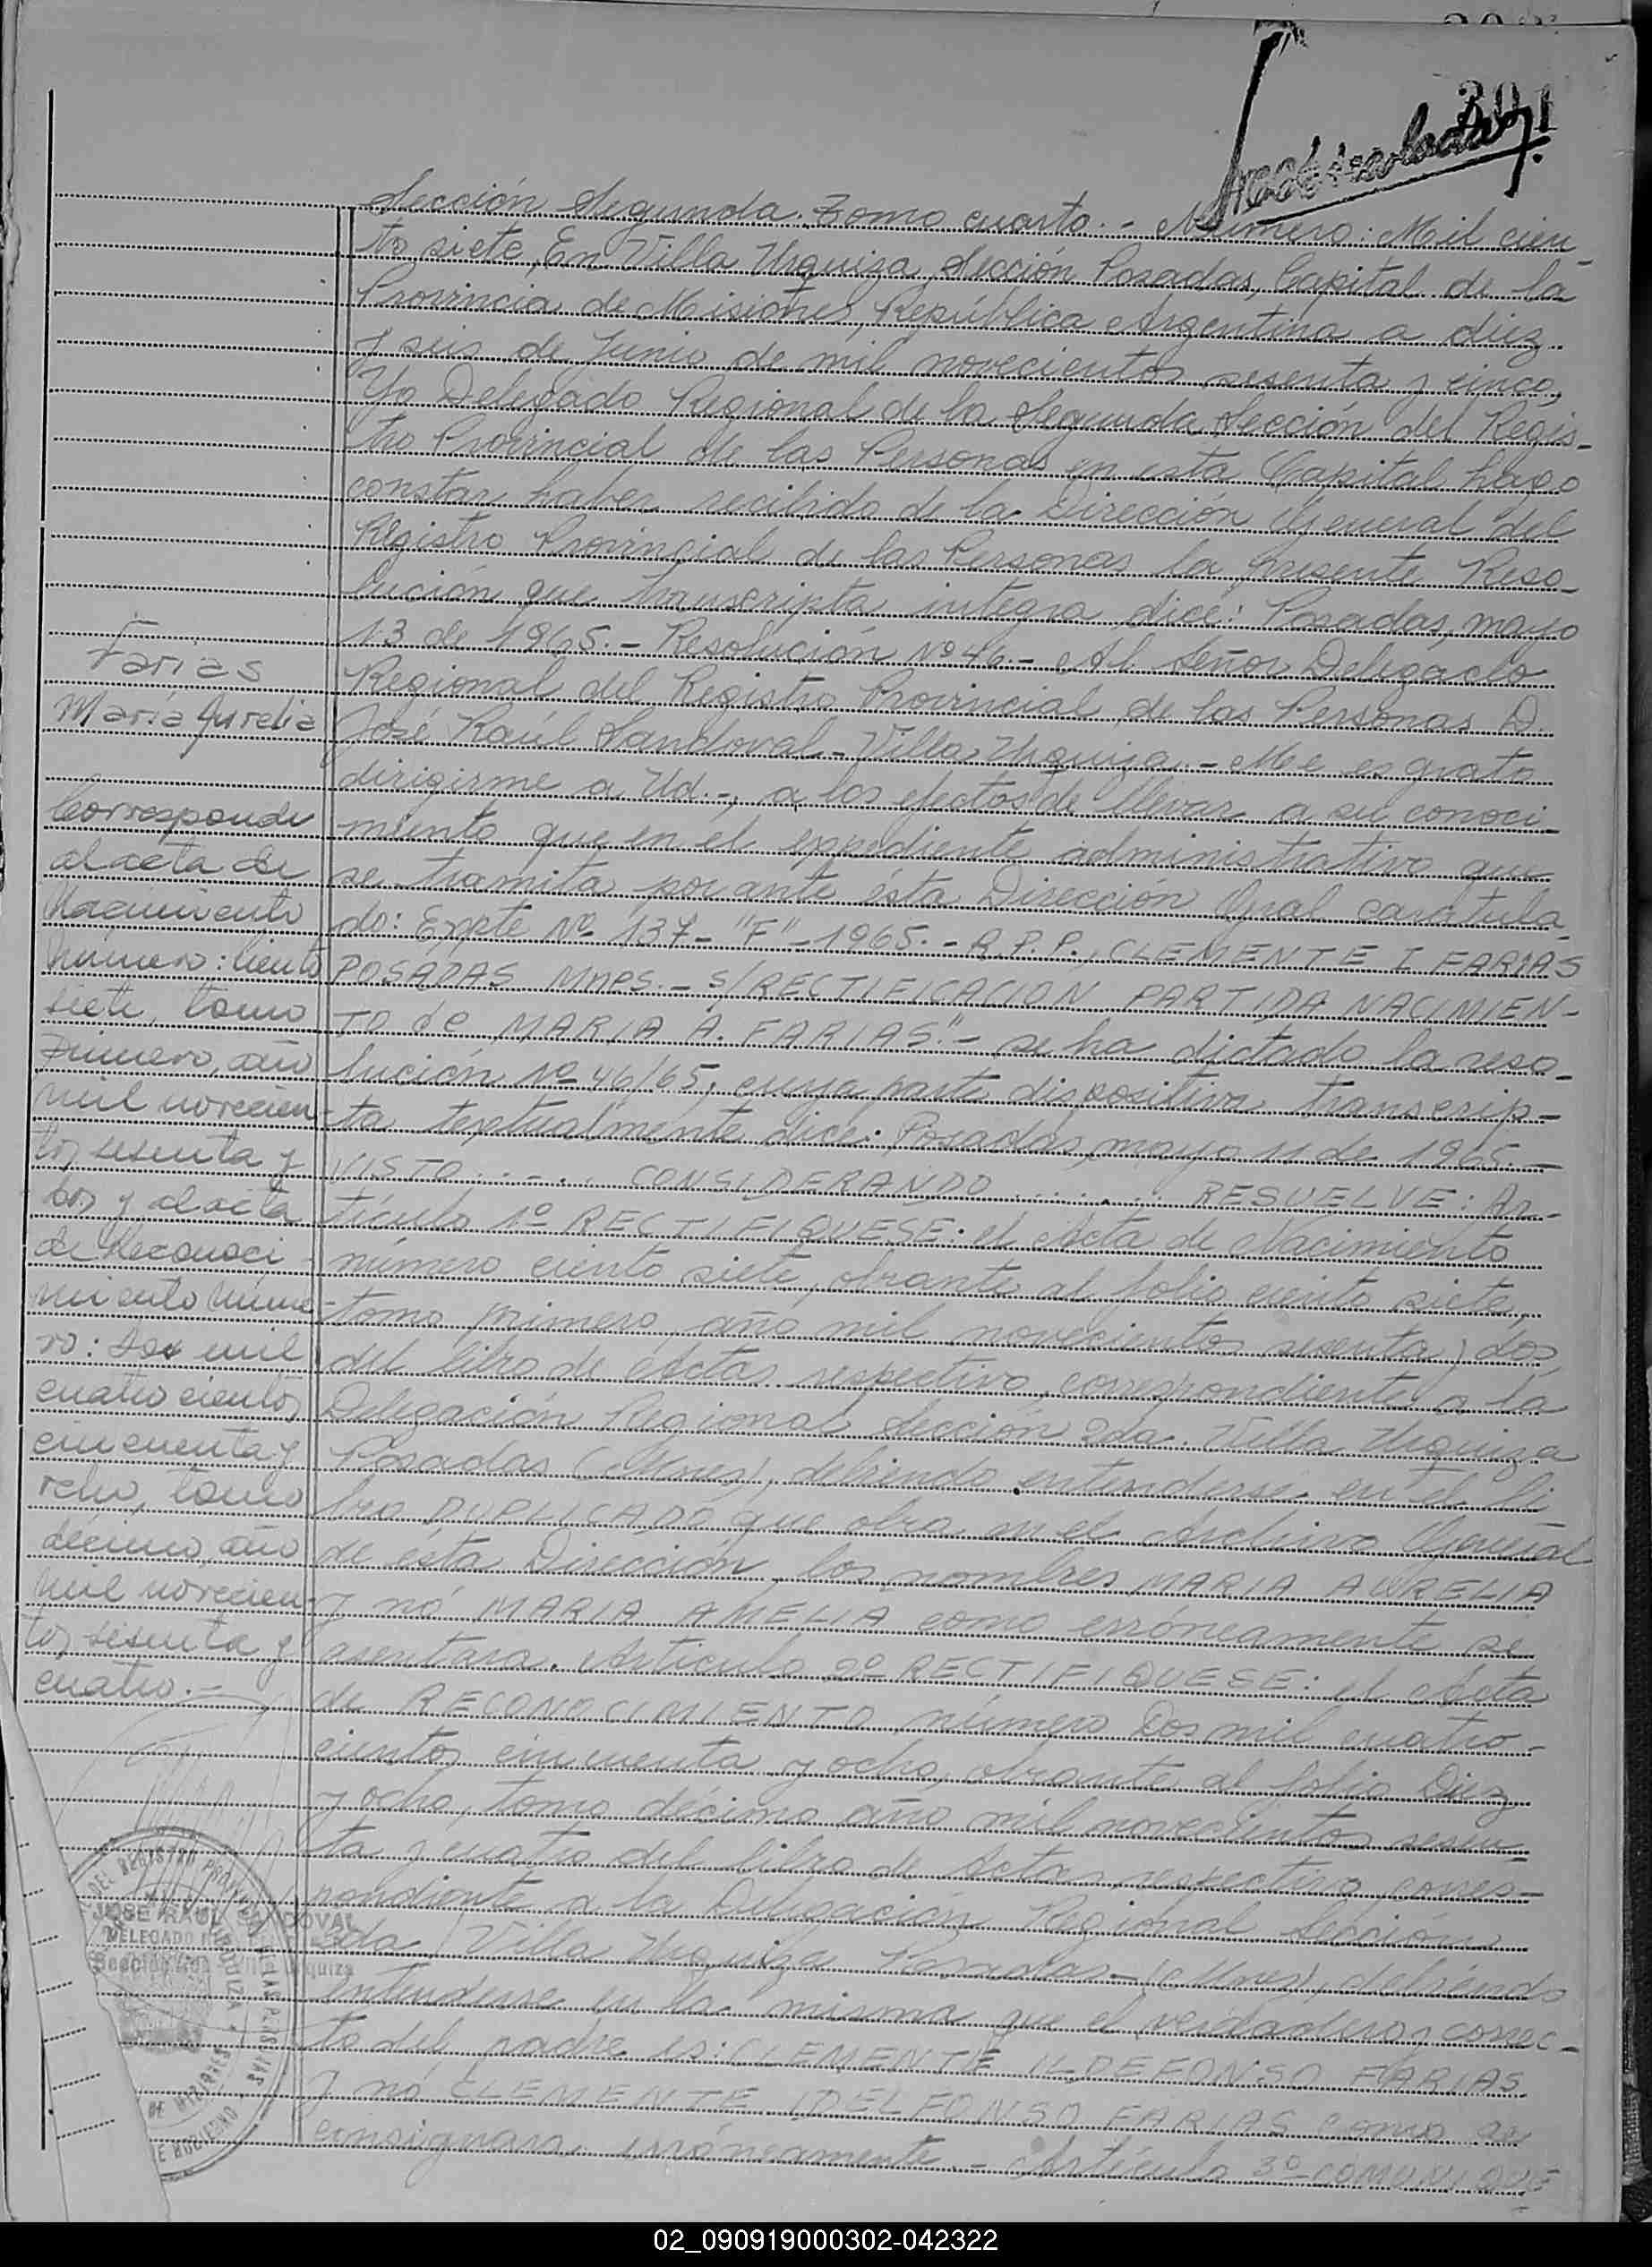 301
Sección Segunda. Tomo cuarto.- Número: Mil cien
to siete, En Villa Urquiza, Sección Posadas, Capital de la
Provincia de Misiones, República Argentina a diez
y seis de Junio de mil novecientos sesenta y cinco,
Yo Delegado Regional de la Segunda Sección del Regis-
tro Provincial de las Personas en esta Capital hago
constar haber recibido de la Dirección General del
Registro Provincial de las Personas la presente Reso-
lución que transcripta integra dice: Posadas, mayo
13 de 1965.- Resolución Nº 46.- Al Señor Delegado
Regional del Registro Provincial de las Personas D.
José Raúl Sandoval - Villa Urquiza.- Me es grato
dirigirme a Ud.-, a los efectos de llevar a su conoci-
miento que en el expediente administrativo que
se tramita por ante ésta Dirección Gral caratula-
do: Expte Nº 137-"F"-1965.- R.P.P., CLEMENTE I FARIAS
POSADAS Mnes.- s/RECTIFICACION PARTIDA NACIMIEN-
TO de MARIA A. FARIAS".- se ha dictado la reso-
lución Nº 46/65, cuya parte dispositiva transcrip-
ta textualmente dice: Posadas, mayo 11 de 1965.-
VISTO ..... CONSIDERANDO ....... RESUELVE: Ar-
tículo 1º RECTIFIQUESE: el Acta de Nacimiento
número ciento siete, obrante al folio ciento siete,
tomo primero, año mil novecientos sesenta y dos,
del libro de Actas respectivo, correspondiente a la
Delegación Regional Sección 2da. Villa Urquiza
Posadas (Mnes), debiendo entenderse en el li
bro DUPLICADO que obra en el Archivo General
de ésta Dirección, los nombres MARIA AURELIA
y nó MARIA AMELIA como erróneamente se
asentara. Artículo 2º RECTIFIQUESE: el Acta
de RECONOCIMIENTO número Dos mil cuatro-
cientos cincuenta y ocho, obrante al folio Diez
y ocho, tomo décimo, año mil novecientos sesen-
ta y cuatro del libro de Actas respectivo, corres-
pondiente a la Delegación Regional Sección
2da. Villa Urquiza Posadas-(Mnes), debiendo
entenderse en la misma que el verdadero y correc-
to del padre es: CLEMENTE ILDEFONSO FARIAS
y nó CLEMENTE IDELFONSO FARIAS como se
consignara erróneamente.- Artículo 3º-COMUNIQUE
Farias
María Aurelia
Corresponde
al acta de
Nacimiento
Número: Ciento
siete, tomo
Primero, año
mil novecien-
tos sesenta y
dos y al acta
de Reconoci-
miento Núme-
ro: Dos mil
cuatrocientos
cincuenta y
ocho, tomo
décimo, año
mil novecien-
tos sesenta y
cuatro.-
JOSE RAUL SANDOVAL
DELEGADO
02_090919000302-042322